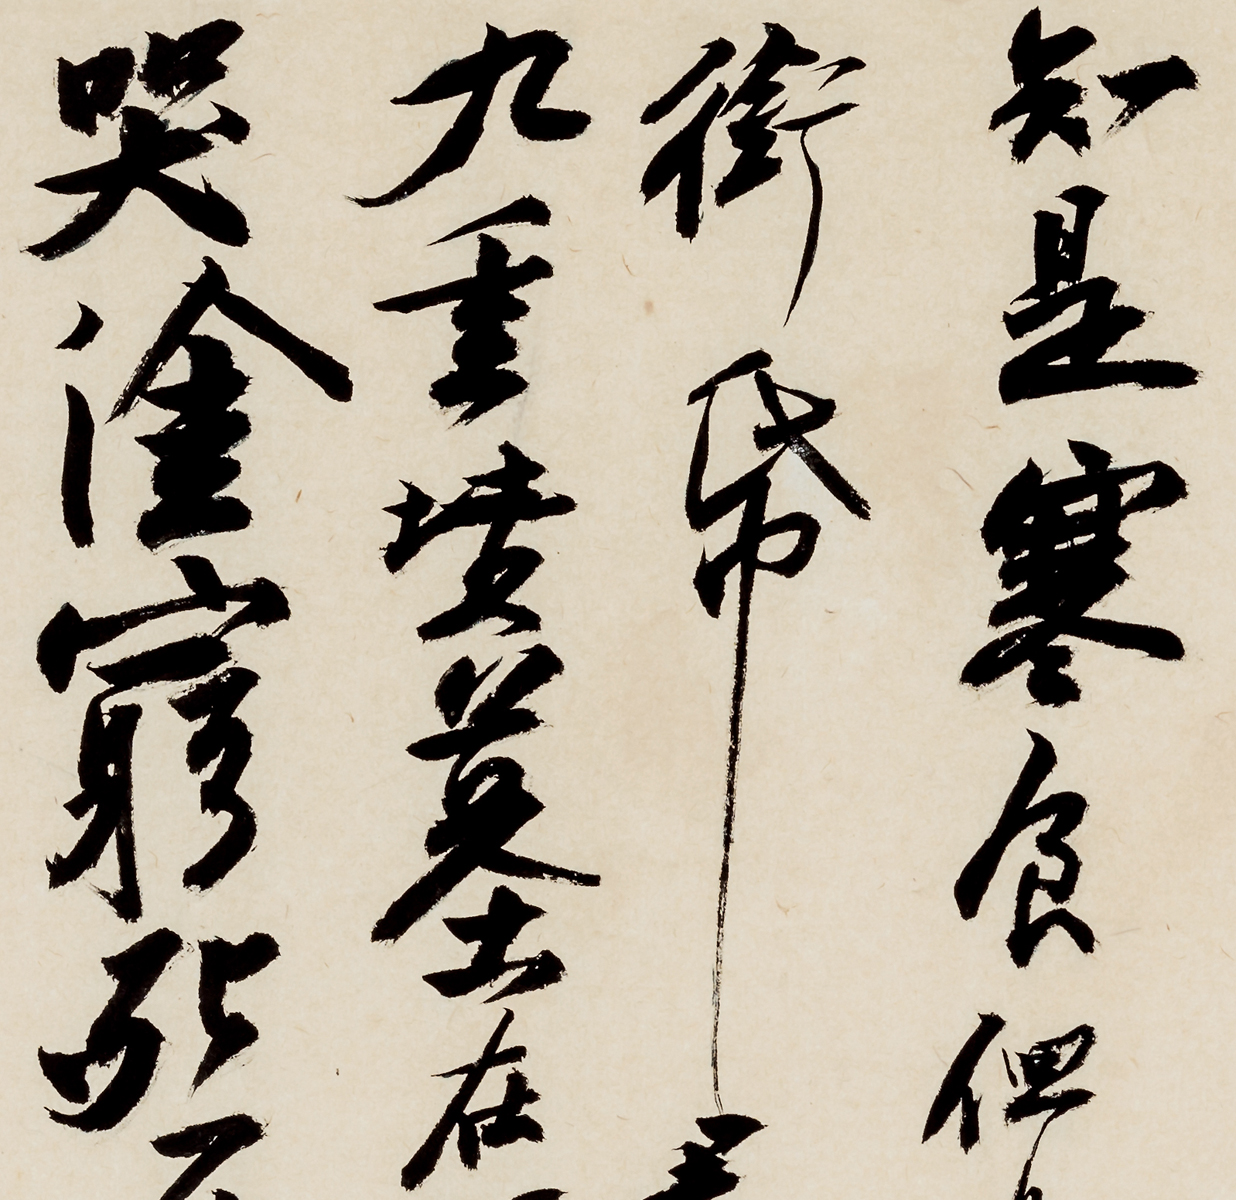 知是寒食但
銜帋
九重墳墓在
哭塗窮死